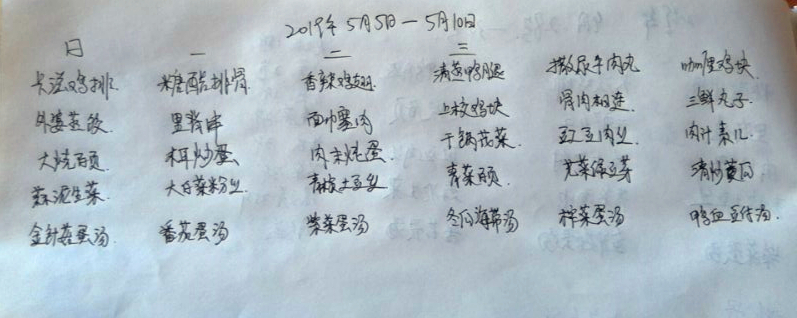 2019年5月5日—5月10日
日 一 二 三
卡滋鸡排 糖醋排骨 香辣鸡翅 清蒸鸭腿 撒尿牛肉丸 咖喱鸡块
外婆蒸饺 里脊串 面巾塞肉 上校鸡块 骨肉相连 三鲜丸子
大烧百页 木耳炒蛋 肉末炖蛋 干锅花菜 豇豆肉丝 肉汁素儿
蒜泥生菜 大白菜粉丝 青椒土豆丝 青菜百页 芹菜绿豆芽 清炒黄瓜
金针菇蛋汤 番茄蛋汤 紫菜蛋汤 冬瓜海带汤 榨菜蛋汤 鸭血豆付汤